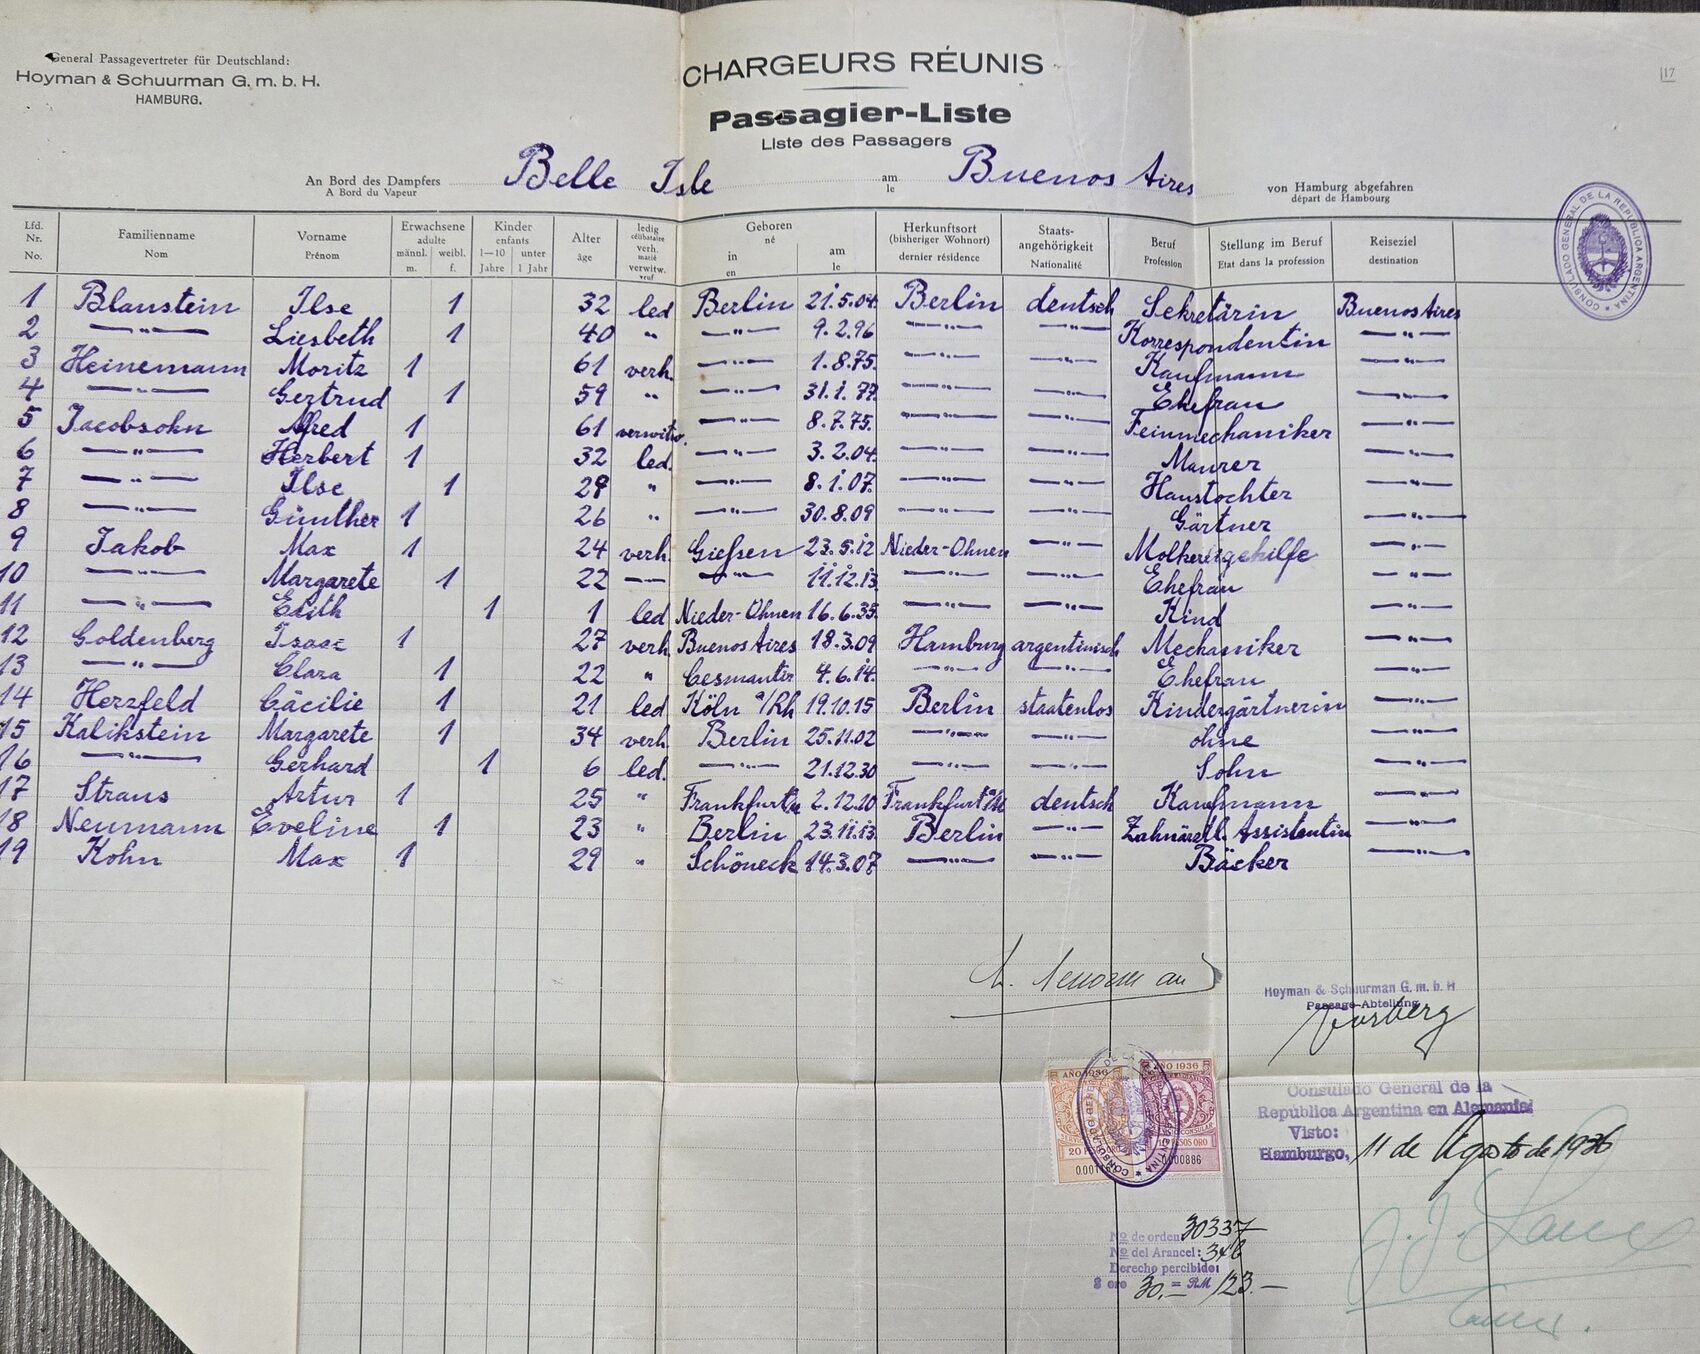 General Passagevertreter für Deutschland:
Hoyman & Schuurman G. m. b. H.
HAMBURG.
CHARGEURS RÉUNIS
Passagier-Liste
Liste des Passagers
17
An Bord des Dampfers Belle Isle am Buenos Aires von Hamburg abgefahren
A Bord du Vapeur le départ de Hambourg
Lfd. Nr. No. Familienname Nom Vorname Prénom Erwachsene adulte männl. m. weibl. f. Kinder enfants 1—10 Jahre unter 1 Jahr Alter âge ledig célibataire verh. marié verwitw. veuf Geboren né in en am le Herkunftsort (bisheriger Wohnort) dernier résidence Staats-angehörigkeit Nationalité Beruf Profession Stellung im Beruf Etat dans la profession Reiseziel destination
1 Blaustein Ilse 1 32 led Berlin 21.5.04. Berlin deutsch Sekretärin Buenos Aires
2 —"— Liesbeth 1 40 " —"— 9.2.96 —"— —"— Korrespondentin —"—
3 Heinemann Moritz 1 61 verh. —"— 1.8.75. —"— —"— Kaufmann —"—
4 —"— Gertrud 1 59 " —"— 31.1.77. —"— —"— Ehefrau —"—
5 Jacobsohn Alfred 1 61 verwitw. —"— 8.7.75. —"— —"— Feinmechaniker —"—
6 —"— Herbert 1 32 led. —"— 3.2.04. —"— —"— Maurer —"—
7 —"— Ilse 1 29 " —"— 8.1.07. —"— —"— Haustochter —"—
8 —"— Günther 1 26 " —"— 30.8.09 —"— —"— Gärtner —"—
9 Jakob Max 1 24 verh. Gießen 23.5.12 Nieder-Ohnen —"— Molkereigehilfe —"—
10 —"— Margarete 1 22 — —"— 11.12.13. —"— —"— Ehefrau —"—
11 —"— Edith 1 1 led Nieder-Ohnen 16.6.35. —"— —"— Kind —"—
12 Goldenberg Isaac 1 27 verh. Buenos Aires 18.3.09 Hamburg argentinisch Mechaniker —"—
13 —"— Clara 1 22 " 4.6.14. —"— —"— Ehefrau —"—
14 Herzfeld Cäcilie 1 21 led Köln a/Rh 19.10.15 Berlin staatenlos Kindergärtnerin —"—
15 Kalikstein Margarete 1 34 verh. Berlin 25.11.02 —"— —"— ohne —"—
16 —"— Gerhard 1 6 led. —"— 21.12.30 —"— —"— Sohn —"—
17 Straus Artur 1 25 " Frankfurt 2.12.10 Frankfurt deutsch Kaufmann —"—
18 Neumann Eveline 1 23 " Berlin 23.11.13. Berlin —"— Zahnärztl. Assistentin —"—
19 Kohn Max 1 29 " Schöneck 14.3.07 —"— —"— Bäcker —"—
CONSULADO GENERAL DE LA REPUBLICA ARGENTINA HAMBURGO
Hoyman & Schuurman G. m. b. H
Passage-Abteilung
AÑO 1936 AÑO 1936
20 PESOS ORO 10 PESOS ORO
0000886
Consulado General de la
República Argentina en Alemania
Visto:
Hamburgo, 11 de Agosto de 1936
Nº de orden 30337
Nº del Arancel: 346
Derecho percibido:
$ oro 30.— = RM 123.—